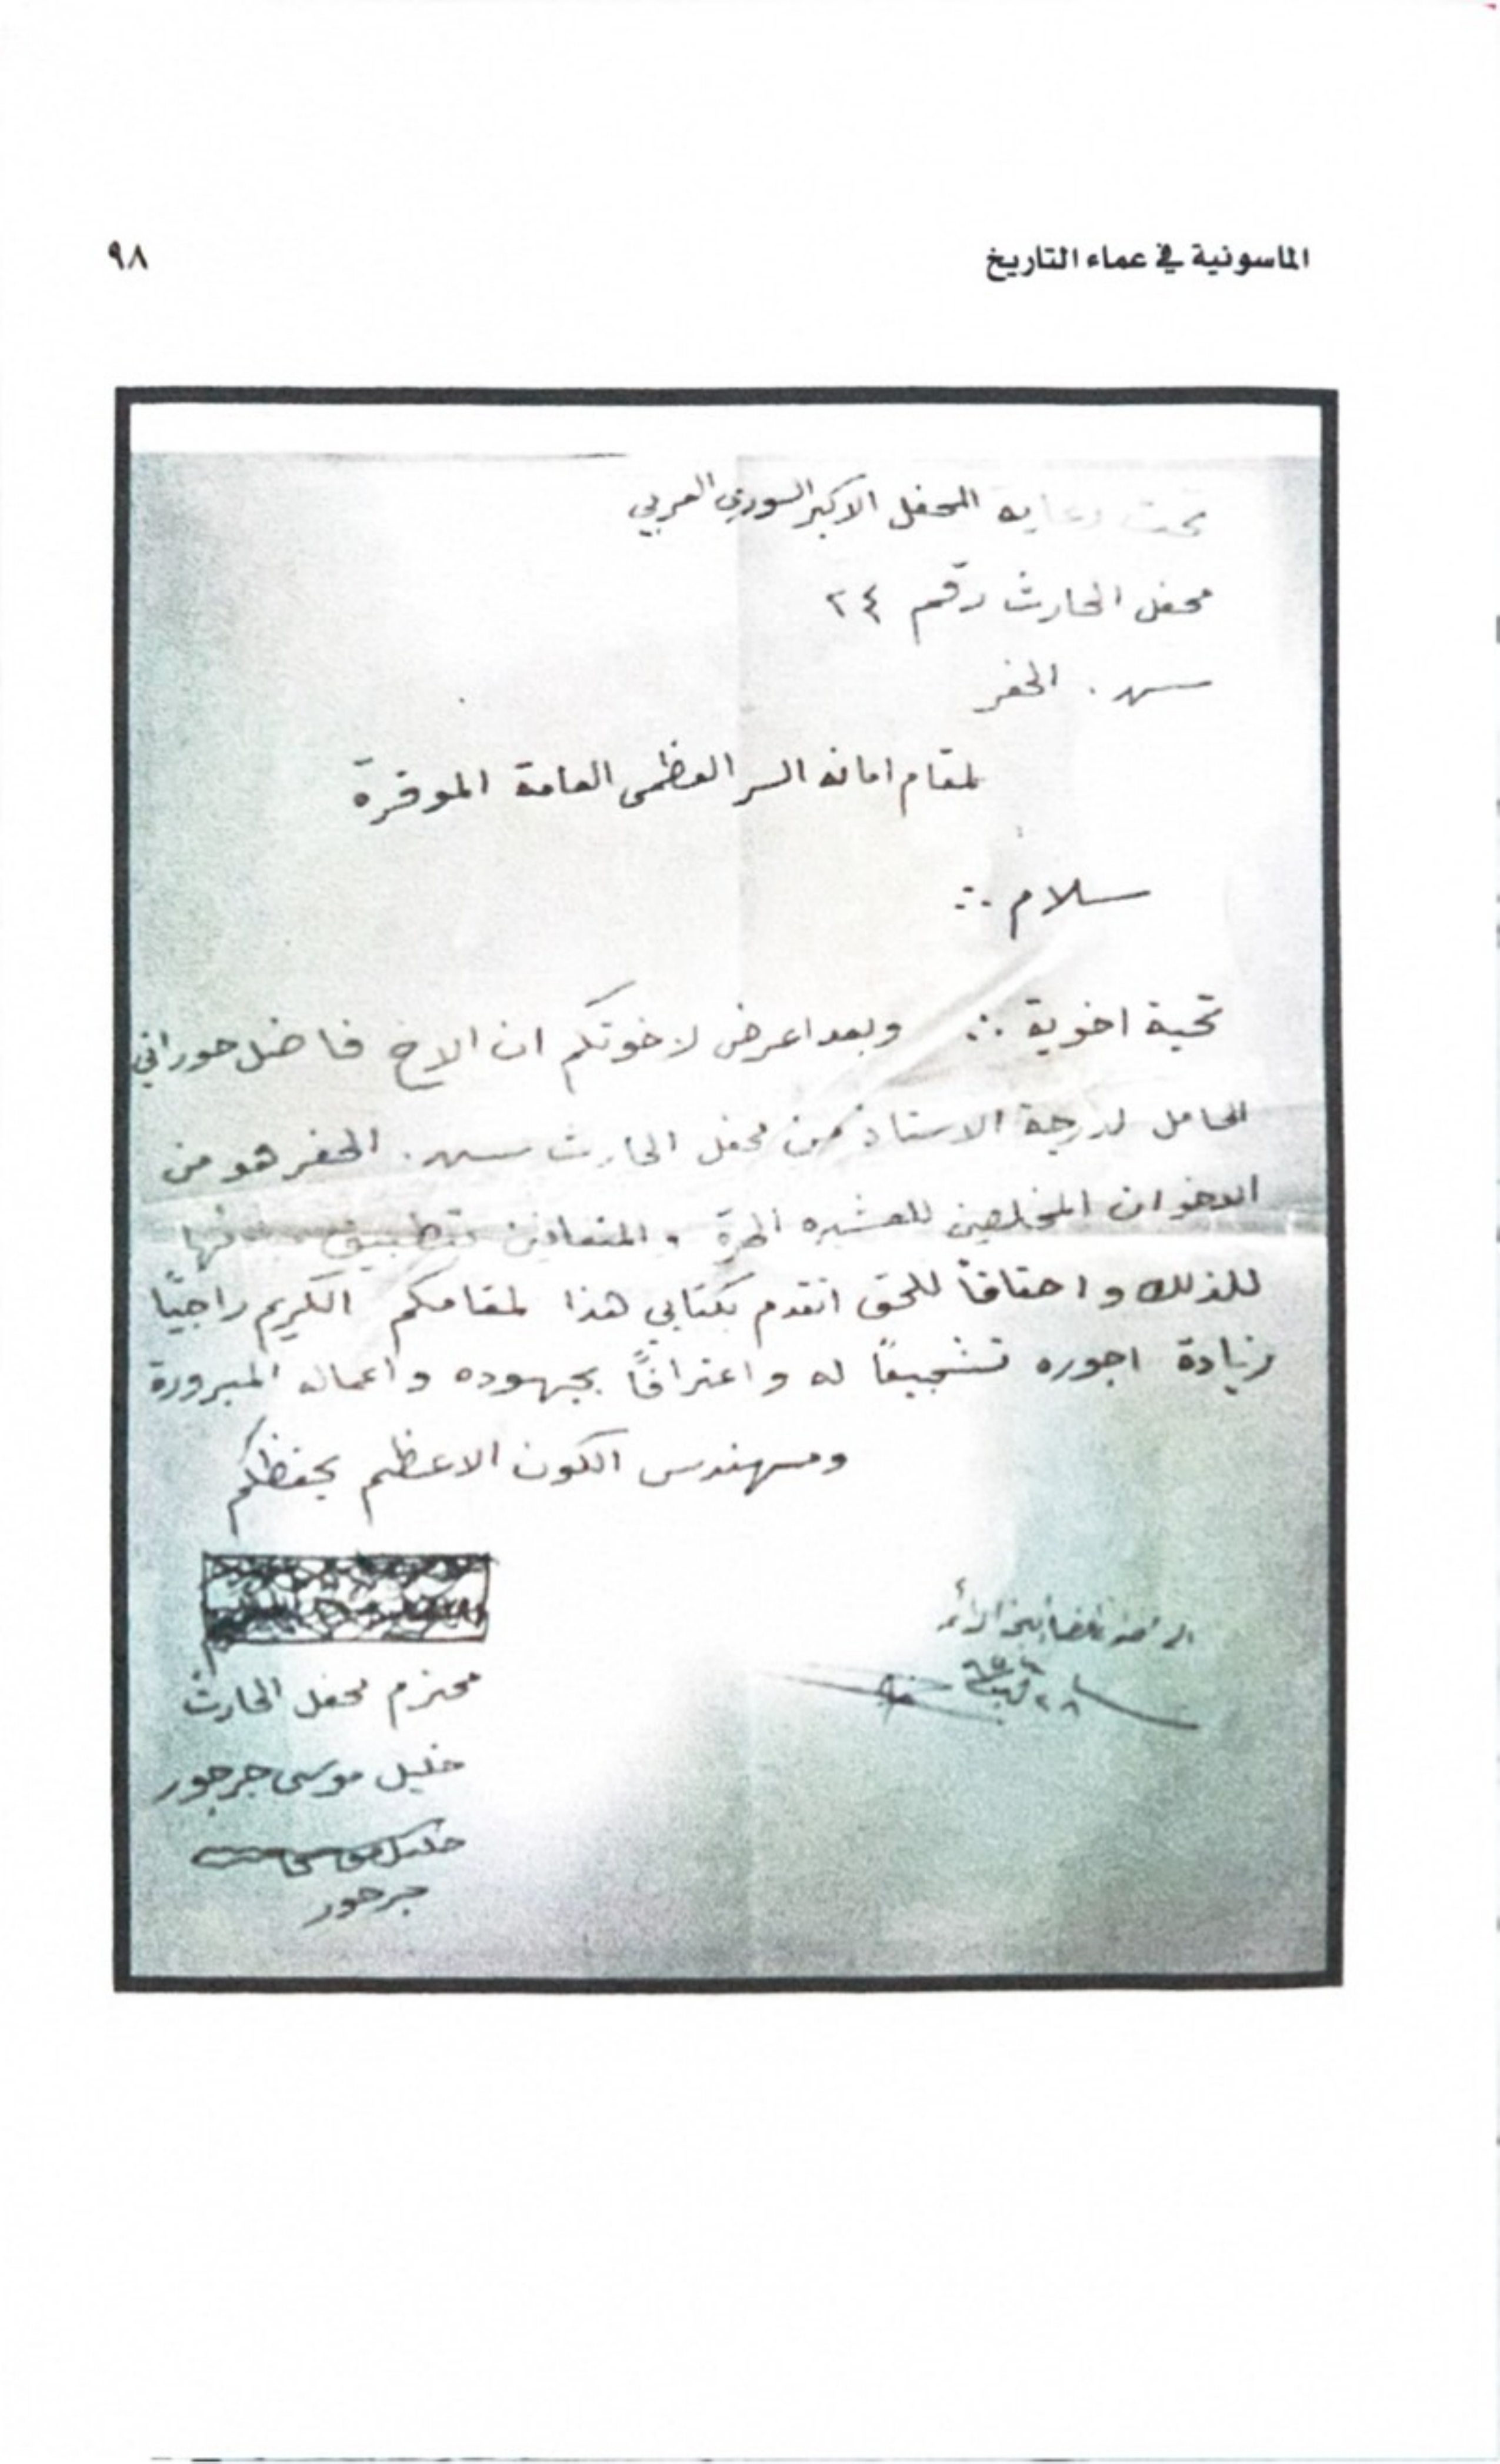 الماسونية في عماء التاريخ
٩٨
تحت رعاية المحفل الاكبر السوري العربي
محفل الحارث رقم ٢٤
س. الحفر
لمقام امانة السر العظمى العامة الموقرة
سلام ∴
تحية اخوية ∴ وبعد اعرض لاخوتكم ان الاخ فاضل حوراني
الحامل لدرجة الاستاذ من محفل الحارث س. الحفر هو من
الاخوان المخلصين للعشيره الحرة و المتفانين بتطبيق
للذلك و احقاقاً للحق اتقدم بكتابي هذا لمقامكم الكريم راجيًا
زيادة اجوره تشجيعاً له و اعترافًا بجهوده و اعماله المبرورة
ومهندس الكون الاعظم يحفظكم
محترم محفل الحارث
خليل موسى جرجور
خليل موسى
جرجور